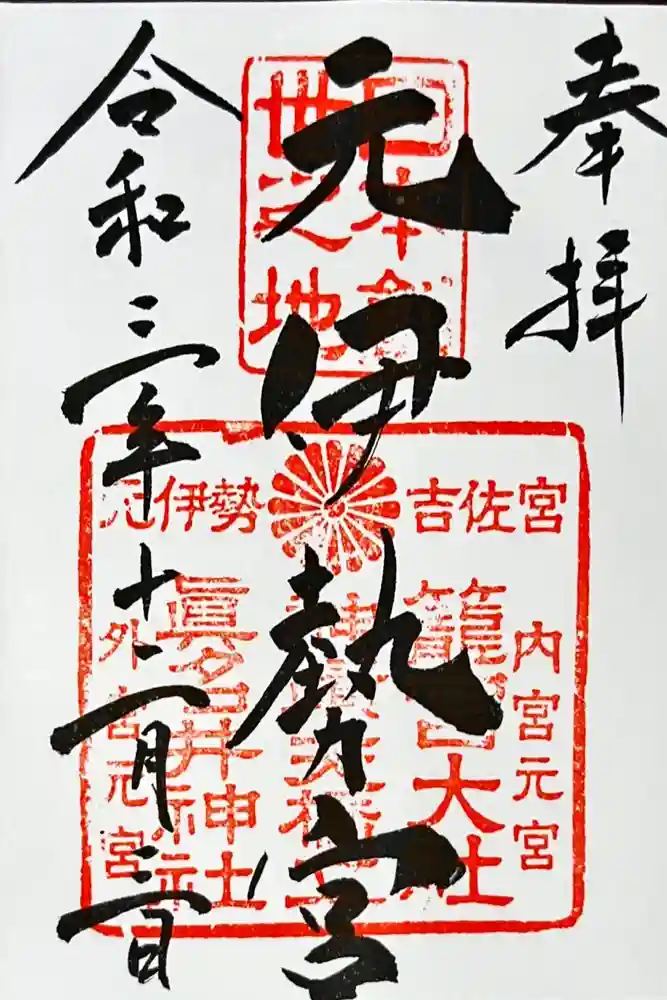 奉拝
日本創
世之地
元伊勢宮
吉佐宮
元伊勢
内宮元宮
籠宮大社
眞名井神社
外宮元宮
令和三年十一月三日